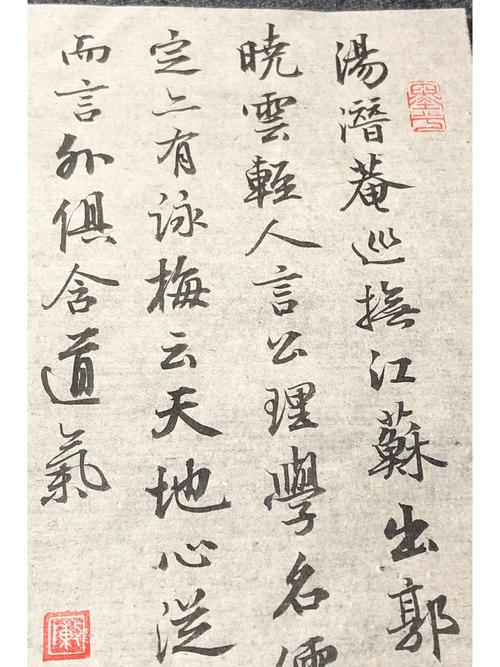 湯潛菴巡撫江蘇出郭
曉雲輕人言公理學名儒
定上有詠梅云天地心從
而言外俱含道氣